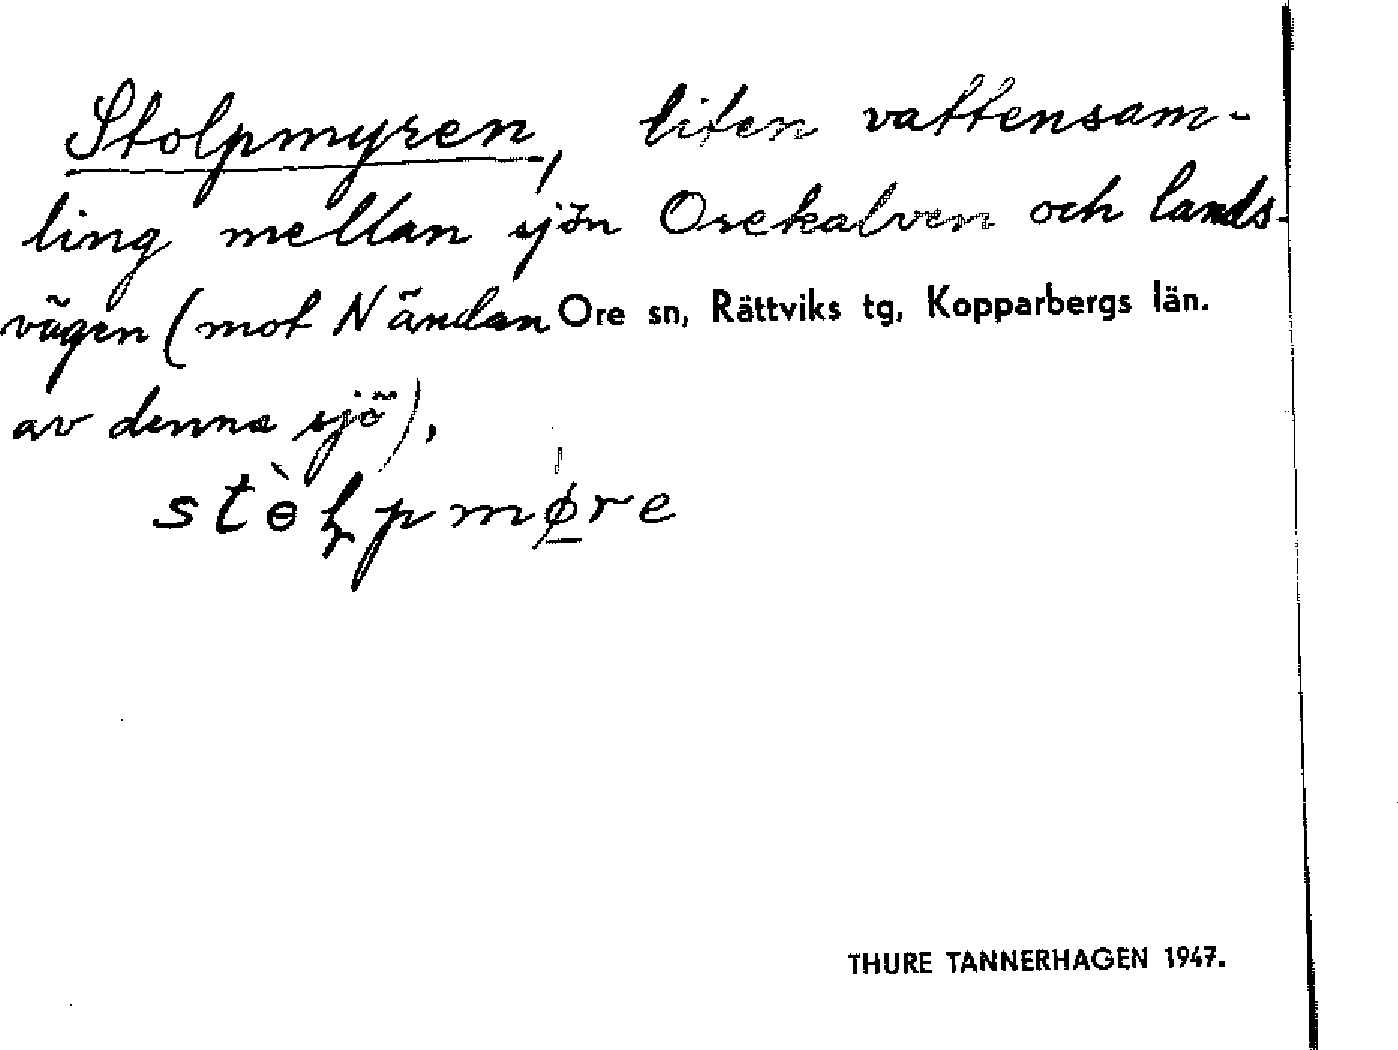 Stolpmyren, liten vattensam-
ling mellan sjön Orekalven och lands-
vägen (mot Nändan Ore sn, Rättviks tg, Kopparbergs län.
av denna sjö).
THURE TANNERHAGEN 1947.